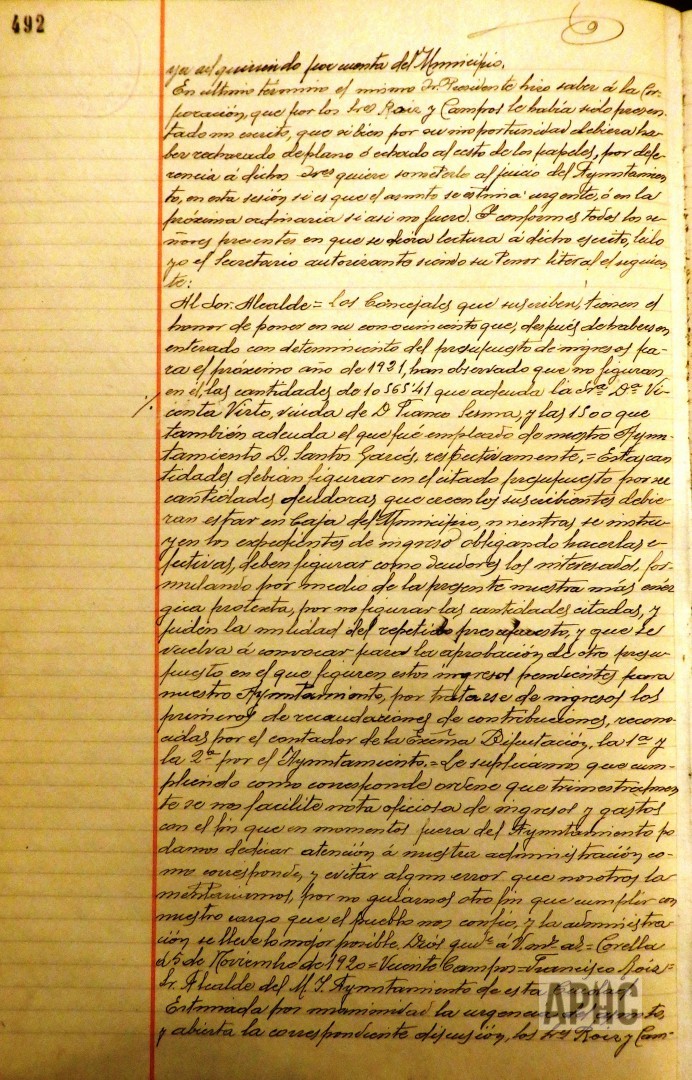 492
ya adquiriendo por cuenta del Municipio.
En último término el mismo Sr. Presidente hizo saber á la Cor-
poración, que por los Sres Roiz y Campos le había sido presen-
tado un escrito, que si bien por su inoportunidad debiera ha-
ber rechazado de plano ó echado al cesto de los papeles, por defe-
rencia á dichos Sres quiere someterlo al juicio del Ayuntamien-
to, en esta sesión si es que el asunto se estima urgente, ó en la
próxima ordinaria si asi no fuere. Y conformes todos los se-
ñores presentes en que se diera lectura á dicho escrito, leilo
yo el Secretario autorizante siendo su tenor literal el siguien-
te:
Al Sor. Alcalde = Los Concejales que suscriben, tienen el
honor de poner en su conocimiento que, después de haberse
enterado con detenimiento del presupuesto de ingresos pa-
ra el próximo año de 1921, han observado que no figuran
en él, las cantidades de 10565'41 que adeuda la Sra. Da Vi-
centa Virto, viuda de D. Franco Sesma, y las 1500 que
también adeuda el que fué empleado de nuestro Ayun-
tamiento D. Santos Garcés, respectivamente, = Estas can-
tidades debian figurar en el citado presupuesto por ser
cantidades deudoras que creen los suscribientes debie-
ran estar en Caja del Municipio, mientras se instru-
yen los expedientes de ingreso obligando hacerlas e-
fectivas, deben figurar como deudores los interesados, for-
mulando por medio de la presente nuestra más enér-
gica protesta, por no figurar las cantidades citadas, y
piden la nulidad del repetido presupuesto, y que se
vuelva á convocar para la aprobación de otro presu-
puesto en el que figuren estos ingresos pendientes para
nuestro Ayuntamiento, por tratarse de ingresos los
primeros de recaudaciones de contribuciones, recono-
cidas por el contador de la Excma Diputación, la 1a y
la 2a por el Ayuntamiento. = Le suplicamos que cum-
pliendo como corresponde ordene que trimestralmen-
te se nos facilite nota oficiosa de ingresos y gastos
con el fin que en momentos fuera del Ayuntamiento po-
damos dedicar atención á nuestra administración co-
mo corresponde, y evitar algun error que nosotros la-
mentariamos, por no guiarnos otro fin que cumplir con
nuestro cargo que el pueblo nos confio, y la administra-
ción se lleve lo mejor posible. Dios gude á V. as = Corella
á 5 de Noviembre de 1920 = Vicente Campos = Francisco Roiz =
Sr. Alcalde del M. I. Ayuntamiento de esta
Estimada por unanimidad la urgencia del asunto,
y abierta la correspondiente discusión, los Sres Roiz y Cam-
APHC